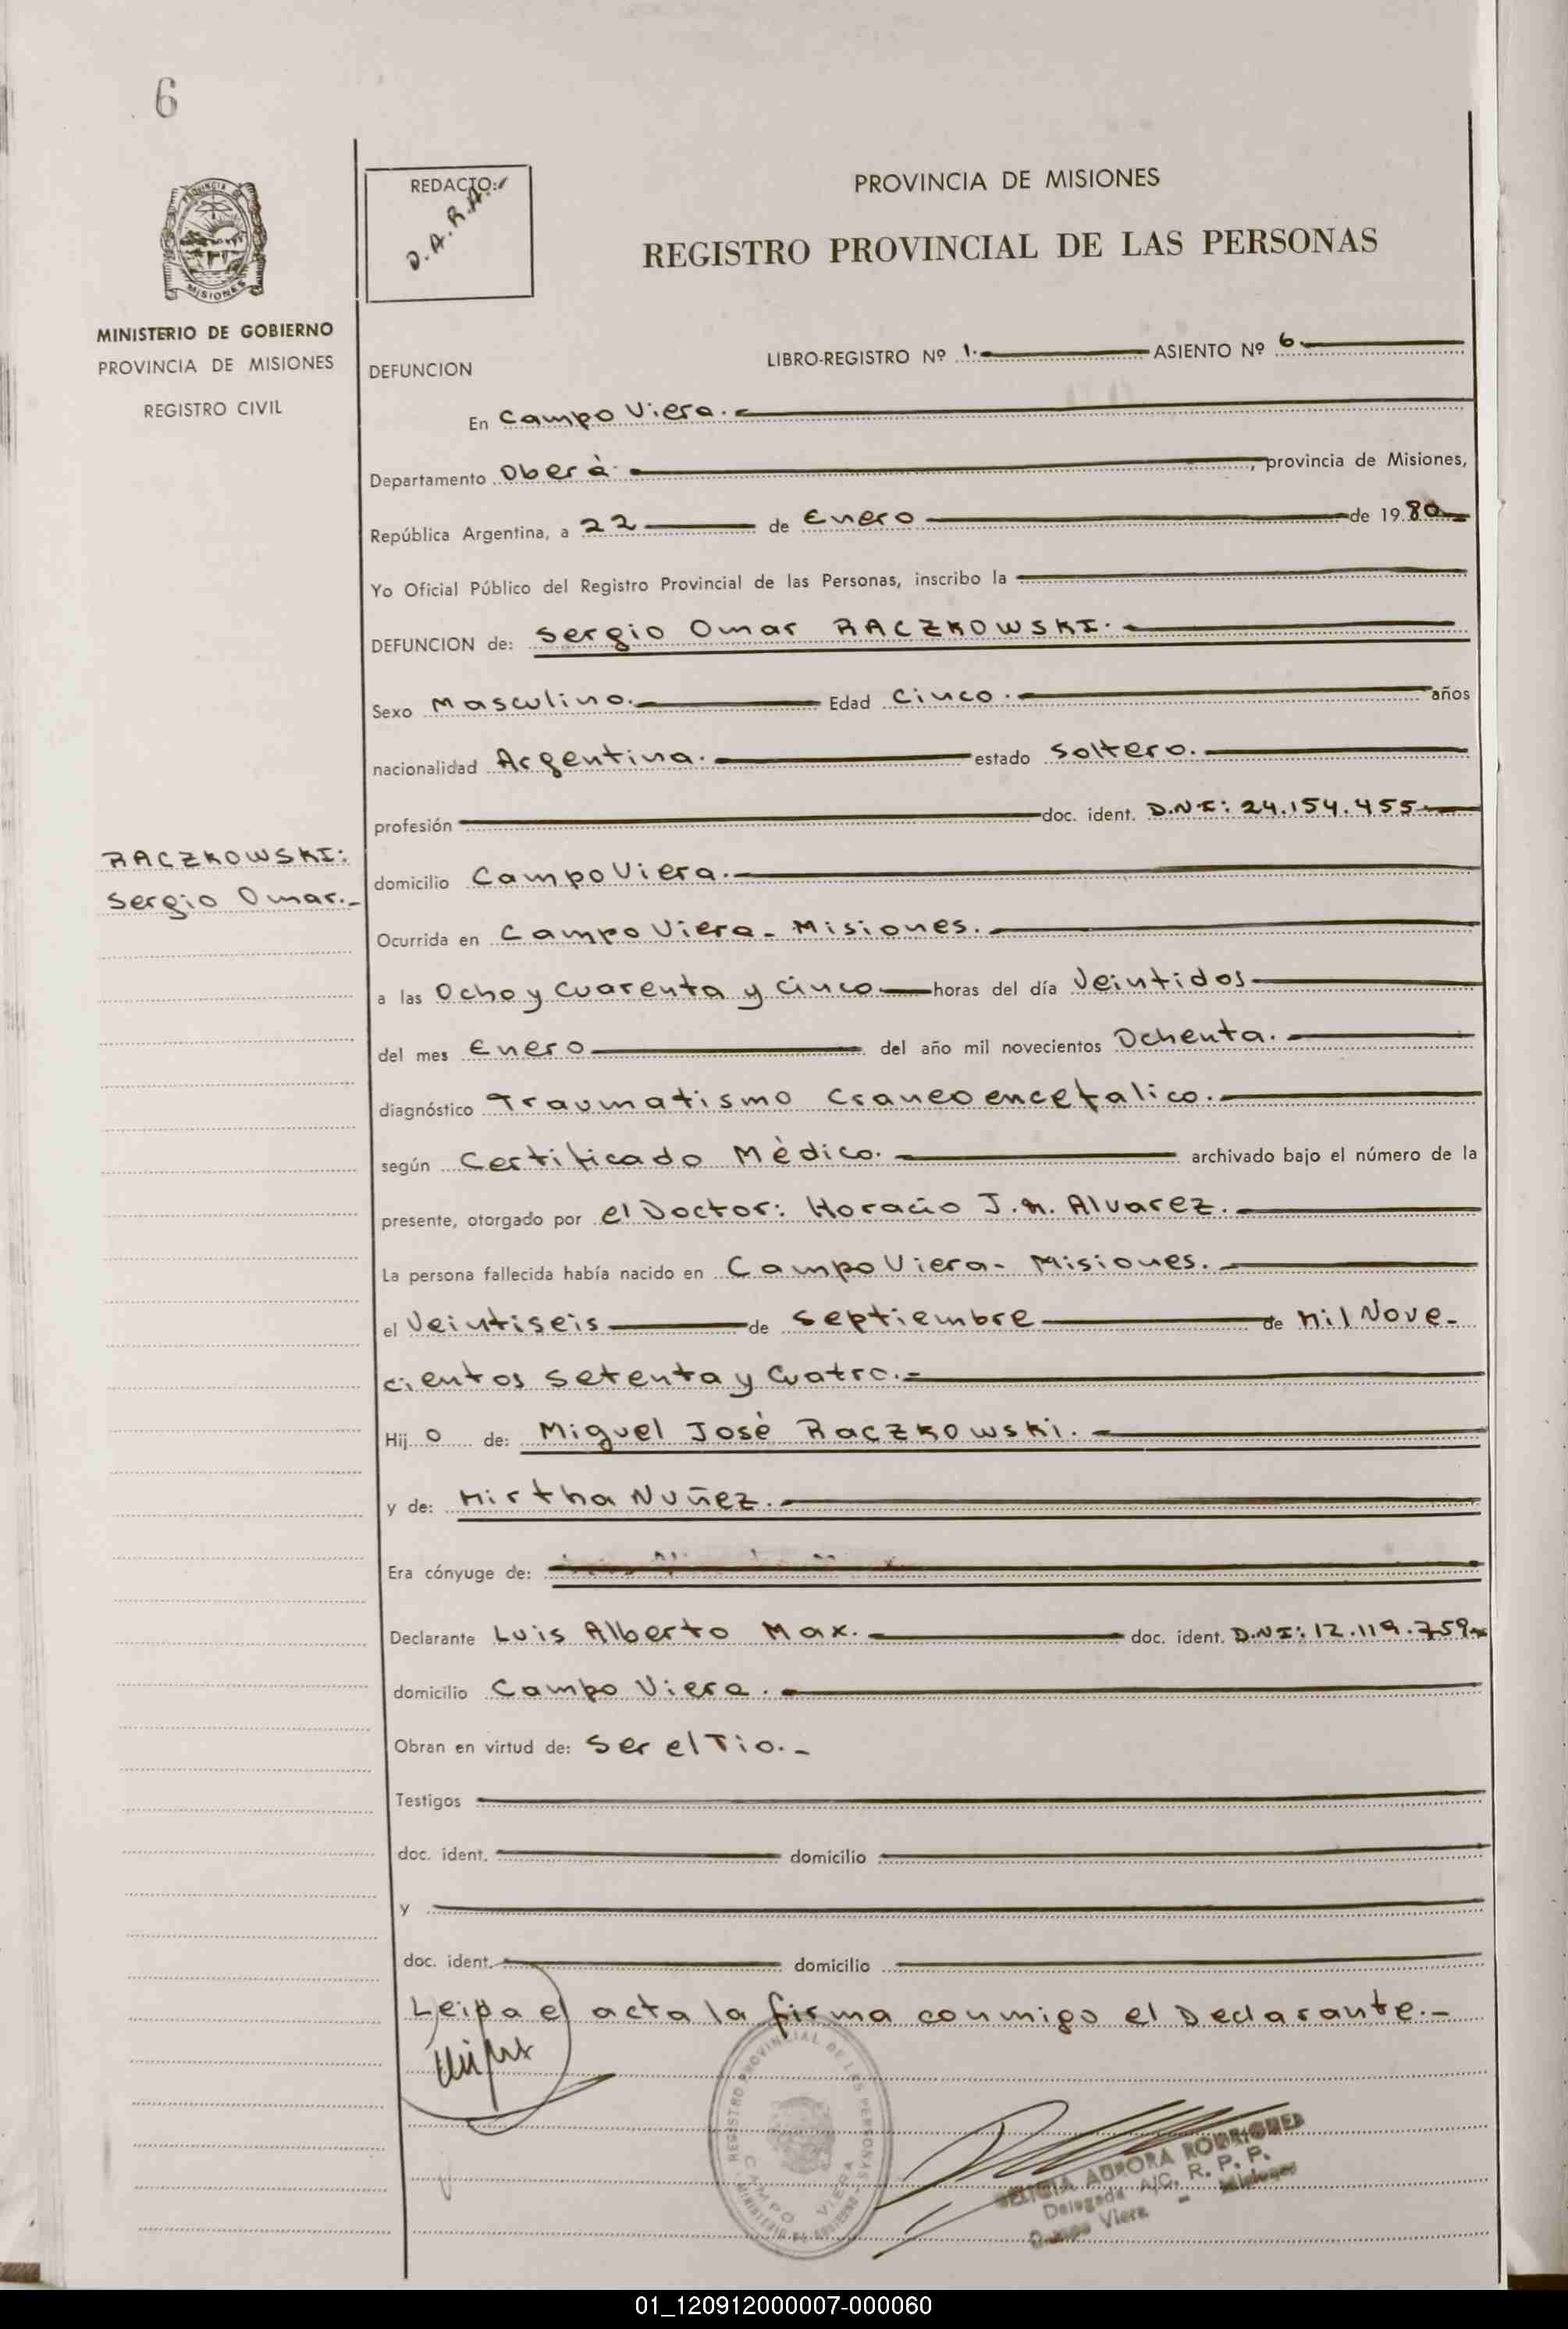 6
PROVINCIA
MISIONES
MINISTERIO DE GOBIERNO
PROVINCIA DE MISIONES
REGISTRO CIVIL
RACZKOWSKI:
Sergio Omar.-
REDACTO:
D.A.R.A.
PROVINCIA DE MISIONES
REGISTRO PROVINCIAL DE LAS PERSONAS
DEFUNCION LIBRO-REGISTRO Nº 1. ASIENTO Nº 6
En Campo Viera.
Departamento Oberà , provincia de Misiones,
República Argentina, a 22 de Enero de 1980
Yo Oficial Público del Registro Provincial de las Personas, inscribo la
DEFUNCION de: Sergio Omar RACZKOWSKI.
Sexo Masculino. Edad Cinco. años
nacionalidad Argentina. estado Soltero.
profesión doc. ident. D.N.I: 24.154.455
domicilio Campo Viera.
Ocurrida en Campo Viera- Misiones.
a las Ocho y Cuarenta y Cinco horas del día Veintidos
del mes Enero del año mil novecientos Ochenta.
diagnóstico Traumatismo Craneoencefalico.
según Certificado Mèdico. archivado bajo el número de la
presente, otorgado por el Doctor: Horacio J. M. Alvarez.
La persona fallecida había nacido en Campo Viera- Misiones.
el Veintiseis de Septiembre de Mil Nove-
cientos Setenta y Cuatro.-
Hijo de: Miguel José Raczkowski.
y de: Mirtha Nuñez.
Era cónyuge de:
Declarante Luis Alberto Max. doc. ident. D.N.I: 12.119.759
domicilio Campo Viera.
Obran en virtud de: Ser el Tio.-
Testigos
doc. ident. domicilio
y
doc. ident. domicilio
Leida el acta la firma conmigo el Declarante.-
REGISTRO PROVINCIAL DE LAS PERSONAS
CAMPO VIERA
MINISTERIO DE GOBIERNO
AURORA RODRIGUEZ
Delegada A/C. R. P. P.
Campo Viera - Misiones
01_120912000007-000060